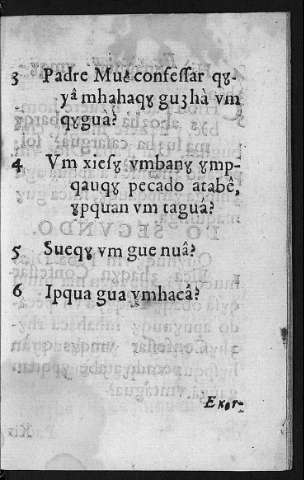 3 Padre Muê confeſſar qɣ-
yâ mhahaqɣ guʒhà vm
qɣguà?
4 Vm xieſɣ ɣmbanɣ ɣmp-
qauqɣ pecado atabê,
ɣpquan vm taguá?
5 Sueqɣ vm gue nuâ?
6 Ipqua gua ɣmhacâ?
Exor-